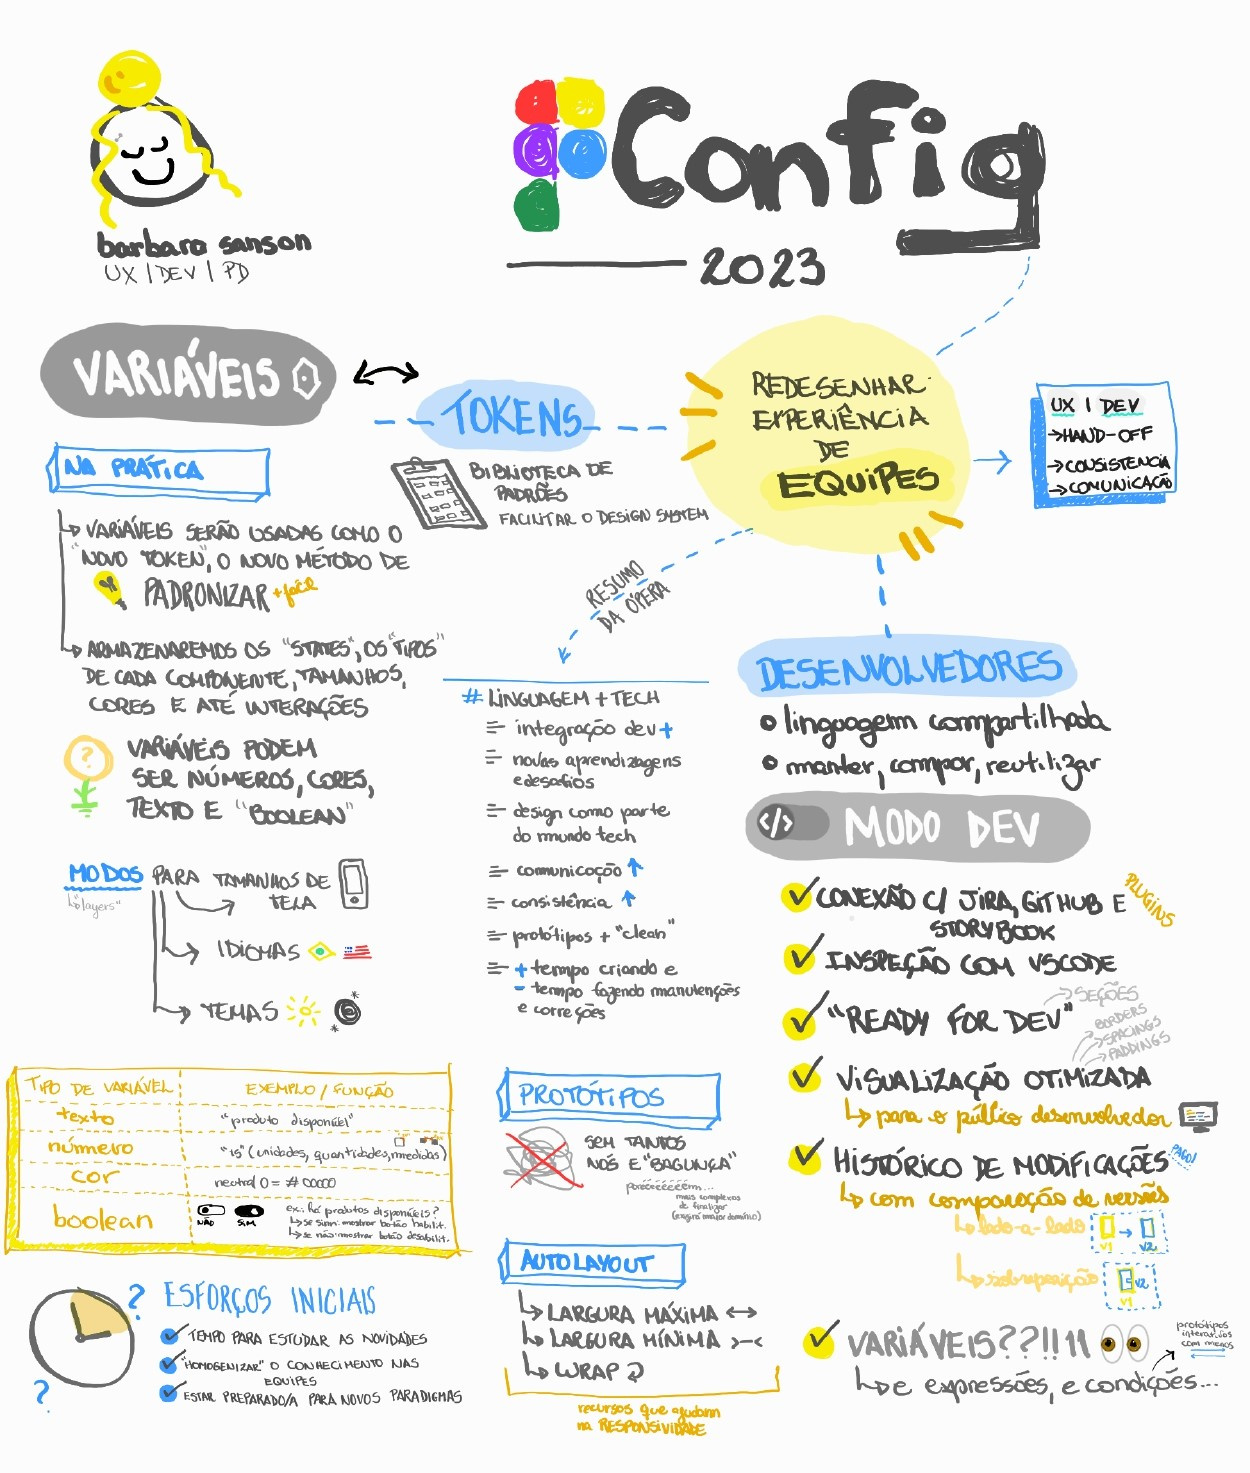 barbara sanson
UX | DEV | PD
Config
2023
VARIÁVEIS
TOKENS
BIBLIOTECA DE
PADRÕES
FACILITAR O DESIGN SYSTEM
REDESENHAR
EXPERIÊNCIA
DE
EQUIPES
UX | DEV
→HAND-OFF
→CONSISTENCIA
→COMUNICAÇÃO
NA PRÁTICA
VARIÁVEIS SERÃO USADAS COMO O
"NOVO TOKEN", O NOVO MÉTODO DE
PADRONIZAR +fácil
ARMAZENAREMOS OS "STATES", OS "TIPOS"
DE CADA COMPONENTE, TAMANHOS,
CORES E ATÉ INTERAÇÕES
?
VARIÁVEIS PODEM
SER NÚMEROS, CORES,
TEXTO E "BOOLEAN"
MODOS PARA TAMANHOS DE
TELA
"layers"
IDIOMAS
TEMAS
RESUMO
DA ÓPERA
# LINGUAGEM + TECH
integração dev +
novas aprendizagens
e desafios
design como parte
do mundo tech
comunicação ↑
consistência ↑
protótipos + "clean"
+ tempo criando e
- tempo fazendo manutenções
e correções
DESENVOLVEDORES
linguagem compartilhada
manter, compor, reutilizar
</> MODO DEV
✓ CONEXÃO C/ JIRA, GITHUB E
STORYBOOK
PLUGINS
✓ INSPEÇÃO COM VSCODE
✓ "READY FOR DEV"
→ SEÇÕES
→ BORDERS
→ SPACINGS
→ PADDINGS
✓ VISUALIZAÇÃO OTIMIZADA
para o público desenvolvedor
✓ HISTÓRICO DE MODIFICAÇÕES
PAGO!
com comparação de versões
lado-a-lado
V1 → V2
sobreposição
V2
V1
✓ VARIÁVEIS??!!11
e expressões, e condições...
protótipos
interativos
com menos
TIPO DE VARIÁVEL EXEMPLO / FUNÇÃO
texto "produto disponível"
número "15" (unidades, quantidades, medidas)
cor neutral 0 = # 00000
boolean
NÃO SIM
ex.: há produtos disponíveis?
se sim: mostrar botão habilit.
se não: mostrar botão desabilit.
PROTÓTIPOS
SEM TANTOS
NÓS E "BAGUNÇA"
poréééééééém...
mais complexos
de finalizar
(exigirá maior domínio)
AUTOLAYOUT
LARGURA MÁXIMA ↔
LARGURA MÍNIMA >-<
WRAP
recursos que ajudam
na RESPONSIVIDADE
?
?
ESFORÇOS INICIAIS
✓ TEMPO PARA ESTUDAR AS NOVIDADES
✓ "HOMOGENIZAR" O CONHECIMENTO NAS
EQUIPES
✓ ESTAR PREPARADO/A PARA NOVOS PARADIGMAS